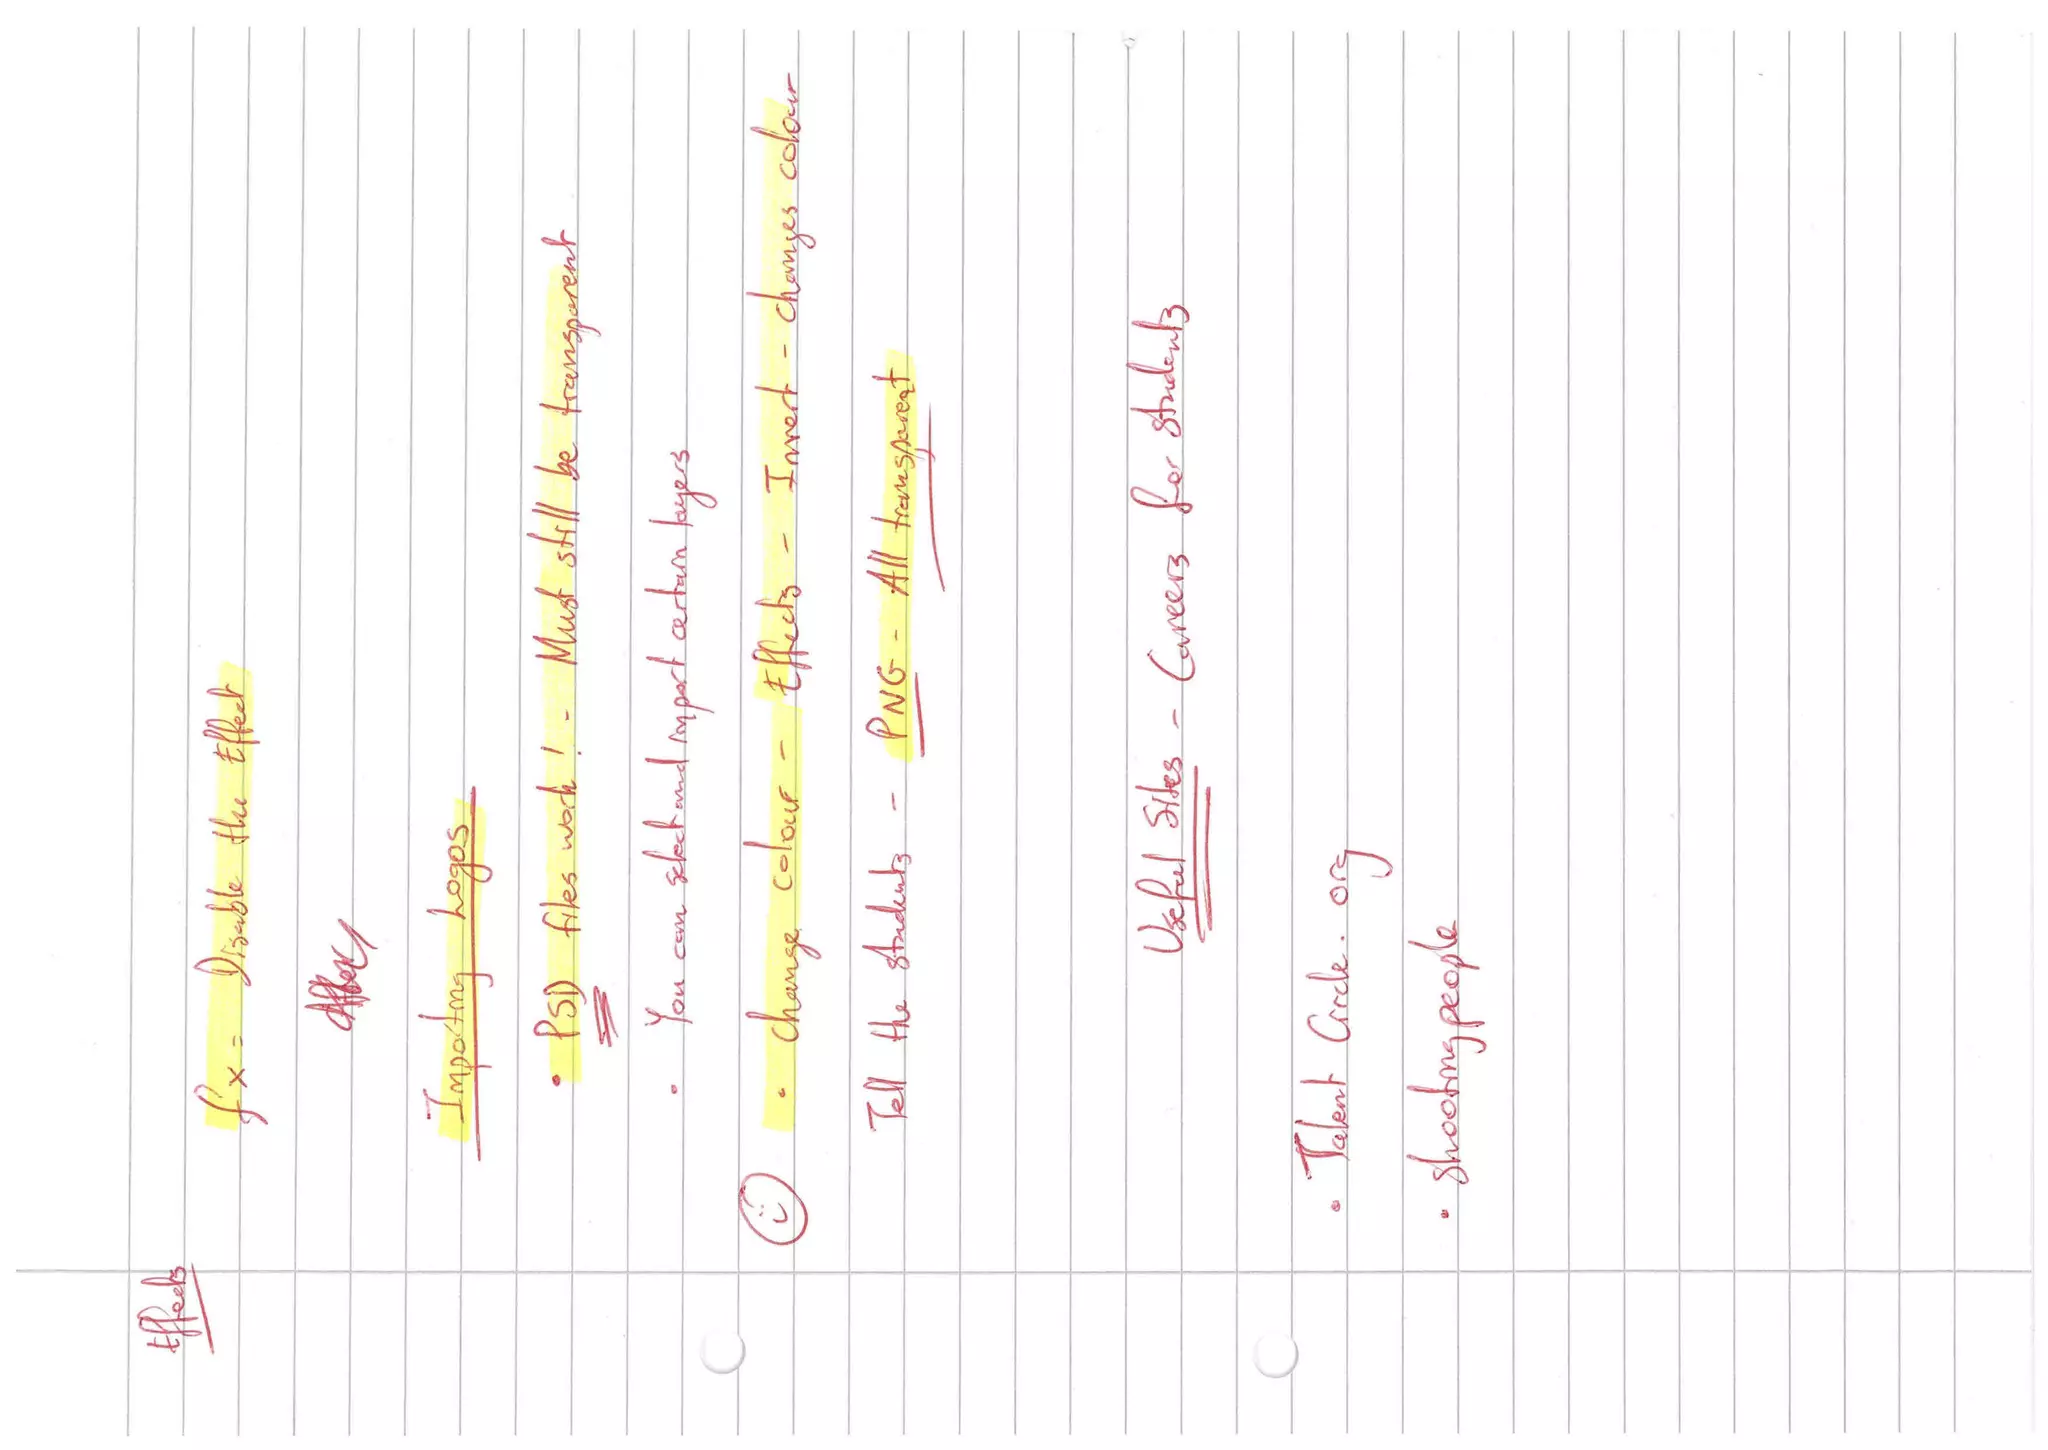 Effects
fx = Disable the Effect
Importing Logos
• PSD files work! - Must still be transparent
• You can select and import certain layers
• Change colour - Effects - Invert - changes colour
Tell the students - PNG - All transparent
Useful Sites - Careers for students
• Talent Circle.org
• Shootingpeople